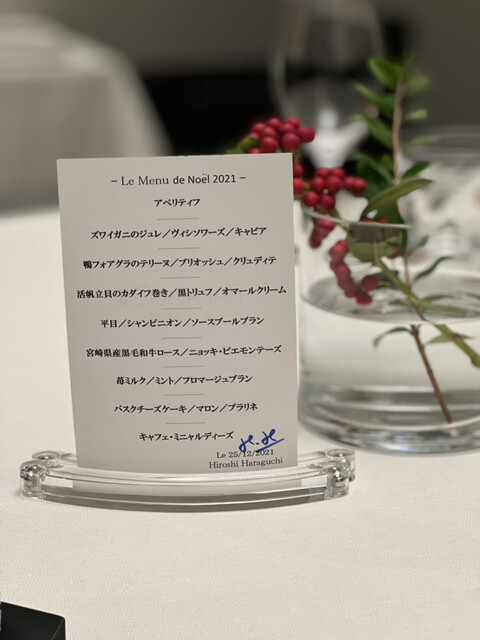 – Le Menu de Noël 2021 –
アペリティフ
ズワイガニのジュレ／ヴィシソワーズ／キャビア
鴨フォアグラのテリーヌ／ブリオッシュ／クリュディテ
活帆立貝のカダイフ巻き／黒トリュフ／オマールクリーム
平目／シャンピニオン／ソースブールブラン
宮崎県産黒毛和牛ロース／ニョッキ・ピエモンテーズ
苺ミルク／ミント／フロマージュブラン
バスクチーズケーキ／マロン／プラリネ
キャフェ・ミニャルディーズ
Le 25/12/2021
Hiroshi Haraguchi